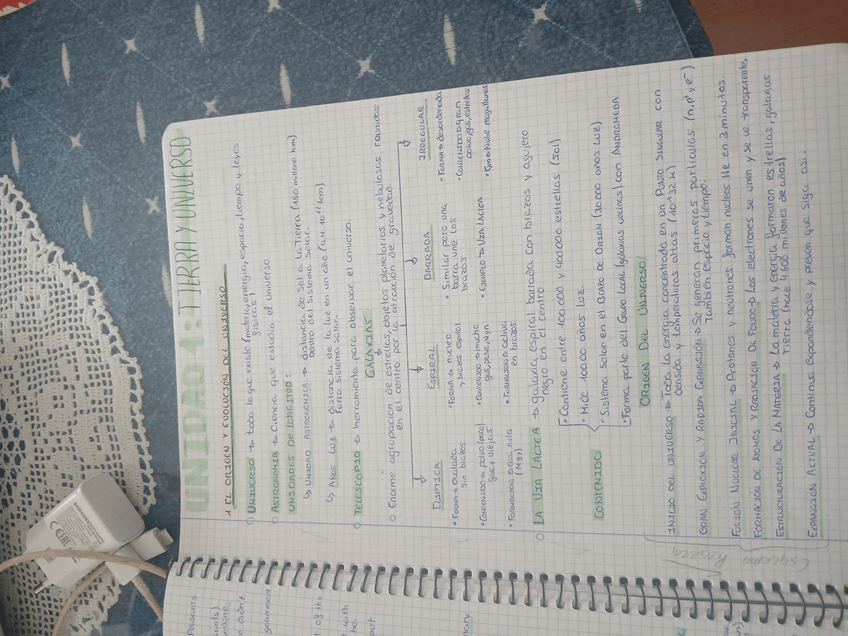 UNIDAD 1: TIERRA Y UNIVERSO
1 EL ORIGEN Y EVOLUCIÓN DEL UNIVERSO
UNIVERSO → todo lo que existe (materia, energía, espacio, tiempo y leyes
físicas)
ASTRONOMÍA → Ciencia que estudia el universo
UNIDADES DE LONGITUD:
↳ UNIDAD ASTRONÓMICA → distancia de sol a la tierra (150 millone km)
Dentro del sistema solar.
↳ AÑOS LUZ → distancia de la luz en un año
Fuera sistema solar.
TELESCOPIO → herramienta para observar el universo
GALAXIAS
Enorme agrupación de estrellas, objetos planetarios y nebulosas reunidos
en el centro por la atracción de gravedad.
ELÍPTICA
• FORMA → ovalada
sin brazos
• CONTENIDO → polvo (poco)
gas + viejas
• FORMACION estre. nula
ESPIRAL
• FORMA → nucleo
y brazos espiral
• CONTENIDO → mucho
gas, polvo
• FORMACION → activa
en brazos
BARRADA
• Similar pero una
barra une los
brazos
• EJEMPLO → VIA LACTEA
IRREGULAR
• FORMA → desordenada
• CONTENIDO → gran
polvo, gas, estrellas
• Ejm → Nube magallanes
LA VIA LACTEA → galaxia espiral barrada con brazos y agujero
negro en el centro
CONTENIDO
• Contiene entre 100.000 y 400.000 estrellas (sol)
• Mide 100.000 años luz.
• Sistema solar en el BRAZO DE ORIÓN
• Forma parte del Grupo Local (galaxias vecinas) con ANDRÓMEDA
ORIGEN DEL UNIVERSO
INICIO DEL UNIVERSO → Toda la energía concentrada en un PUNTO SINGULAR con
densida y temperaturas altas
GRAN EXPLOSIÓN Y RÁPIDA EXPANSIÓN → Se generan primeras partículas (n, p+ y e-)
También espacio y tiempo.
FUSIÓN NUCLEAR INICIAL → Protones y neutrones forman nucleos He en 3 minutos
FORMACION DE ATOMOS Y → Los electrones se unen y se ve transparente.
ESTRUCTURACIÓN DE LA MATERIA → La materia y energía formaron estrellas, galaxias
Tierra
EXPANSIÓN ACTUAL → Continua expandiéndose y prevén que siga así.
Esquema